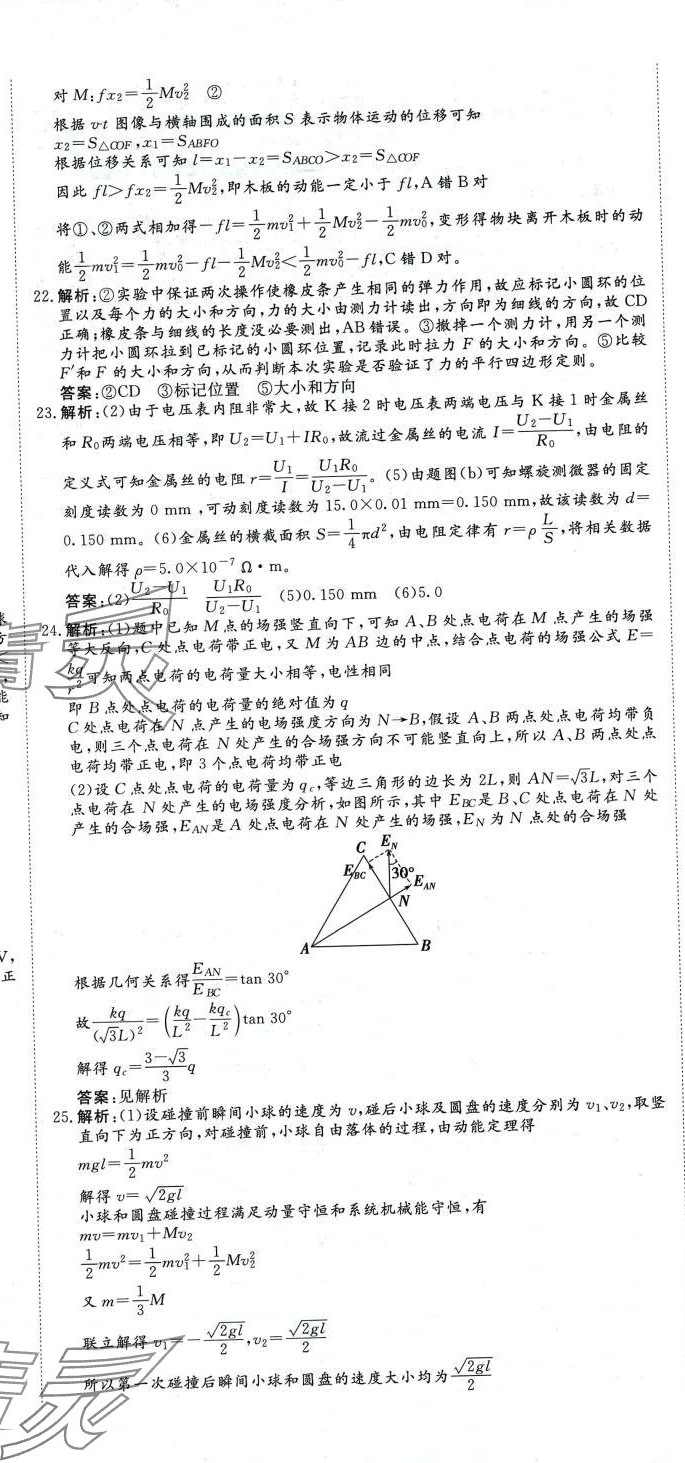 对 M:fx₂=\frac{1}{2}Mv₂² ②
根据 v-t 图像与横轴围成的面积 S 表示物体运动的位移可知
x₂=S△COF,x₁=S_{ABFO}
根据位移关系可知 l=x₁-x₂=S_{ABCO}>x₂=S△COF
因此 fl>fx₂=\frac{1}{2}Mv₂²,即木板的动能一定小于 fl,A 错 B 对
将①、②两式相加得-fl=\frac{1}{2}mv₁²+\frac{1}{2}Mv₂²-\frac{1}{2}mv₀²,变形得物块离开木板时的动
能\frac{1}{2}mv₁²=\frac{1}{2}mv₀²-fl-\frac{1}{2}Mv₂²<\frac{1}{2}mv₀²-fl,C 错 D 对。
22.解析:②实验中保证两次操作使橡皮条产生相同的弹力作用,故应标记小圆环的位
置以及每个力的大小和方向,力的大小由测力计读出,方向即为细线的方向,故 CD
正确;橡皮条与细线的长度没必要测出,AB 错误。③撤掉一个测力计,用另一个测
力计把小圆环拉到已标记的小圆环位置,记录此时拉力 F 的大小和方向。⑤比较
F′和 F 的大小和方向,从而判断本次实验是否验证了力的平行四边形定则。
答案:②CD ③标记位置 ⑤大小和方向
23.解析:(2)由于电压表内阻非常大,故 K 接 2 时电压表两端电压与 K 接 1 时金属丝
和 R₀两端电压相等,即 U₂=U₁+IR₀,故流过金属丝的电流 I=\frac{U₂-U₁}{R₀},由电阻的
定义式可知金属丝的电阻 r=\frac{U₁}{I}=\frac{U₁R₀}{U₂-U₁}。(5)由题图(b)可知螺旋测微器的固定
刻度读数为 0 mm ,可动刻度读数为 15.0×0.01 mm=0.150 mm,故该读数为 d=
0.150 mm。(6)金属丝的横截面积 S=\frac{1}{4}πd²,由电阻定律有 r=ρ\frac{L}{S},将相关数据
代入解得 ρ=5.0×10⁻⁷ Ω·m。
答案:(2)\frac{U₂-U₁}{R₀} \frac{U₁R₀}{U₂-U₁} (5)0.150 mm (6)5.0
24.解析:(1)题中已知 M 点的场强竖直向下,可知 A、B 处点电荷在 M 点产生的场强
等大反向,C 处点电荷带正电,又 M 为 AB 边的中点,结合点电荷的场强公式 E=
\frac{kq}{r²}可知两点电荷的电荷量大小相等,电性相同
即 B 点处点电荷的电荷量的绝对值为 q
C 处点电荷在 N 点产生的电场强度方向为 N→B,假设 A、B 两点处点电荷均带负
电,则三个点电荷在 N 处产生的合场强方向不可能竖直向上,所以 A、B 两点处点
电荷均带正电,即 3 个点电荷均带正电
(2)设 C 点处点电荷的电荷量为 q_c,等边三角形的边长为 2L,则 AN=√3L,对三个
点电荷在 N 处产生的电场强度分析,如图所示,其中 E_{BC}是 B、C 处点电荷在 N 处
产生的合场强,E_{AN}是 A 处点电荷在 N 处产生的场强,E_N 为 N 点处的合场强
C E_N
E_{BC} 30° E_{AN}
N
A B
根据几何关系得\frac{E_{AN}}{E_{BC}}=tan 30°
故\frac{kq}{(√3L)²}=(\frac{kq}{L²}-\frac{kq_c}{L²})tan 30°
解得 q_c=\frac{3-√3}{3}q
答案:见解析
25.解析:(1)设碰撞前瞬间小球的速度为 v,碰后小球及圆盘的速度分别为 v₁、v₂,取竖
直向下为正方向,对碰撞前,小球自由落体的过程,由动能定理得
mgl=\frac{1}{2}mv²
解得 v=√2gl
小球和圆盘碰撞过程满足动量守恒和系统机械能守恒,有
mv=mv₁+Mv₂
\frac{1}{2}mv²=\frac{1}{2}mv₁²+\frac{1}{2}Mv₂²
又 m=\frac{1}{3}M
联立解得 v₁=-\frac{√2gl}{2},v₂=\frac{√2gl}{2}
所以第一次碰撞后瞬间小球和圆盘的速度大小均为\frac{√2gl}{2}